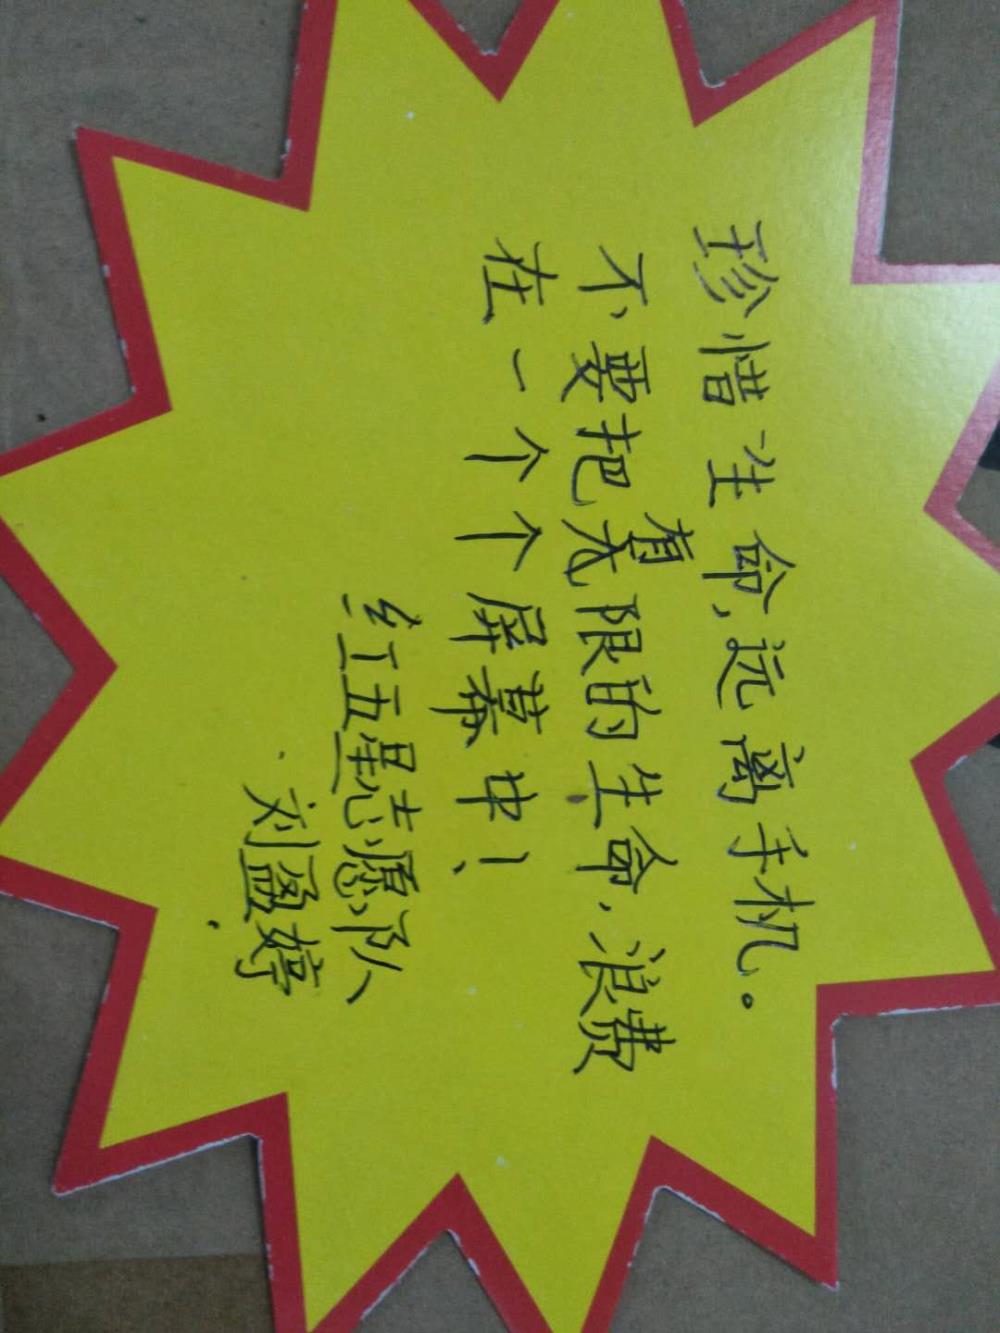 珍惜生命,远离手机。
不要把有限的生命,浪费
在一个个屏幕中!
红五星志愿队
刘盈婷